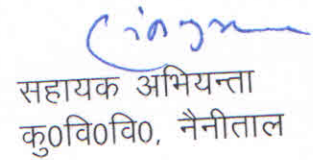 सहायक अभियन्ता
कु0वि0वि0, नैनीताल